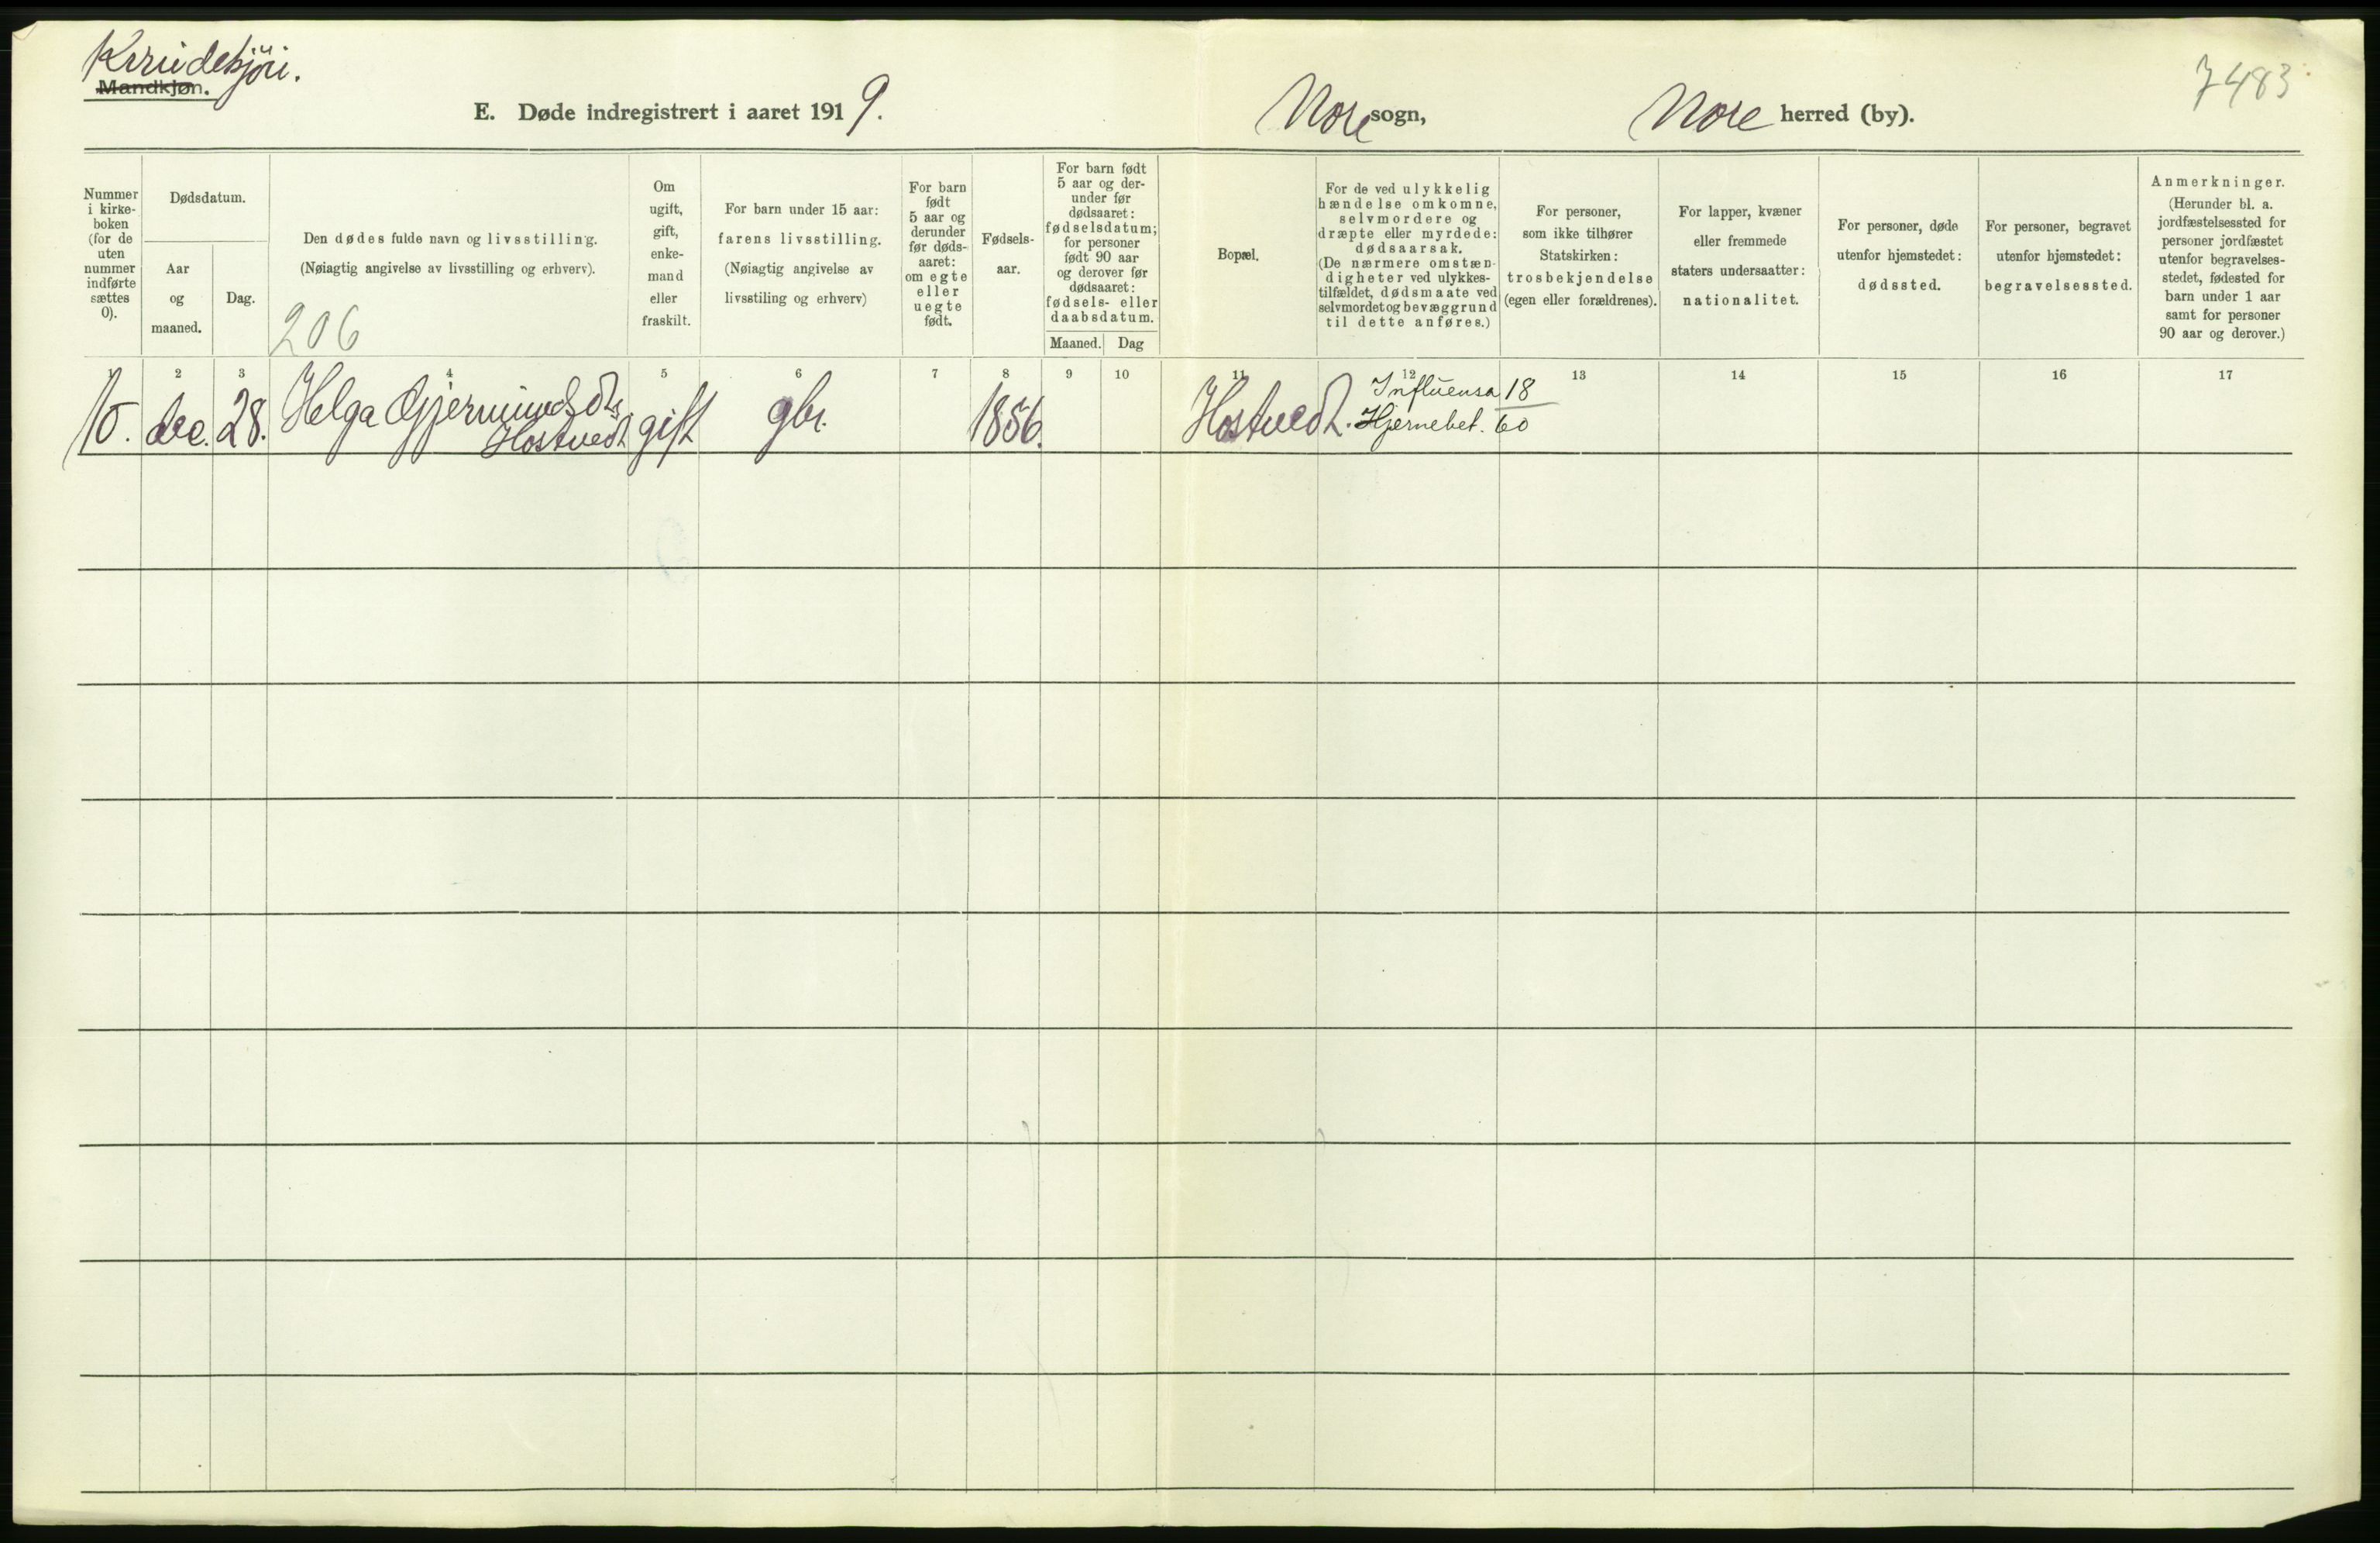 Kvindekjön.
Mandkjøn.
7483
E. Døde indregistrert i aaret 1919. Nore sogn, Nore herred (by).
Nummer
i kirke-
boken
(for de
uten
nummer
indførte
sættes
0).
Dødsdatum.
Aar
og
maaned.
Dag.
Den dødes fulde navn og livsstilling.
(Nøiagtig angivelse av livsstilling og erhverv).
206
Om
ugift,
gift,
enke-
mand
eller
fraskilt.
For barn under 15 aar:
farens livsstilling.
(Nøiagtig angivelse av
livsstiling og erhverv)
For barn
født
5 aar og
derunder
før døds-
aaret:
om egte
eller
uegte
født.
Fødsels-
aar.
For barn født
5 aar og der-
under før
dødsaaret:
fødselsdatum;
for personer
født 90 aar
og derover før
dødsaaret:
fødsels- eller
daabsdatum.
Maaned. Dag
Bopæl.
For de ved ulykkelig
hændelse omkomne,
selvmordere og
dræpte eller myrdede:
dødsaarsak.
(De nærmere omstæn-
digheter ved ulykkes-
tilfældet, dødsmaate ved
selvmordet og bevæggrund
til dette anføres.)
For personer,
som ikke tilhører
Statskirken:
trosbekjendelse
(egen eller forældrenes).
For lapper, kvæner
eller fremmede
staters undersaatter:
nationalitet.
For personer, døde
utenfor hjemstedet:
dødssted.
For personer, begravet
utenfor hjemstedet:
begravelsessted.
Anmerkninger.
(Herunder bl. a.
jordfæstelsessted for
personer jordfæstet
utenfor begravelses-
stedet, fødested for
barn under 1 aar
samt for personer
90 aar og derover.)
1 2 3 4 5 6 7 8 9 10 11 12 13 14 15 16 17
10. dec. 28. Helga Gjermundsdtr gift gbr. 1856. Hostvedt. Influensa 18
Hostvedt Hjernebet. 60